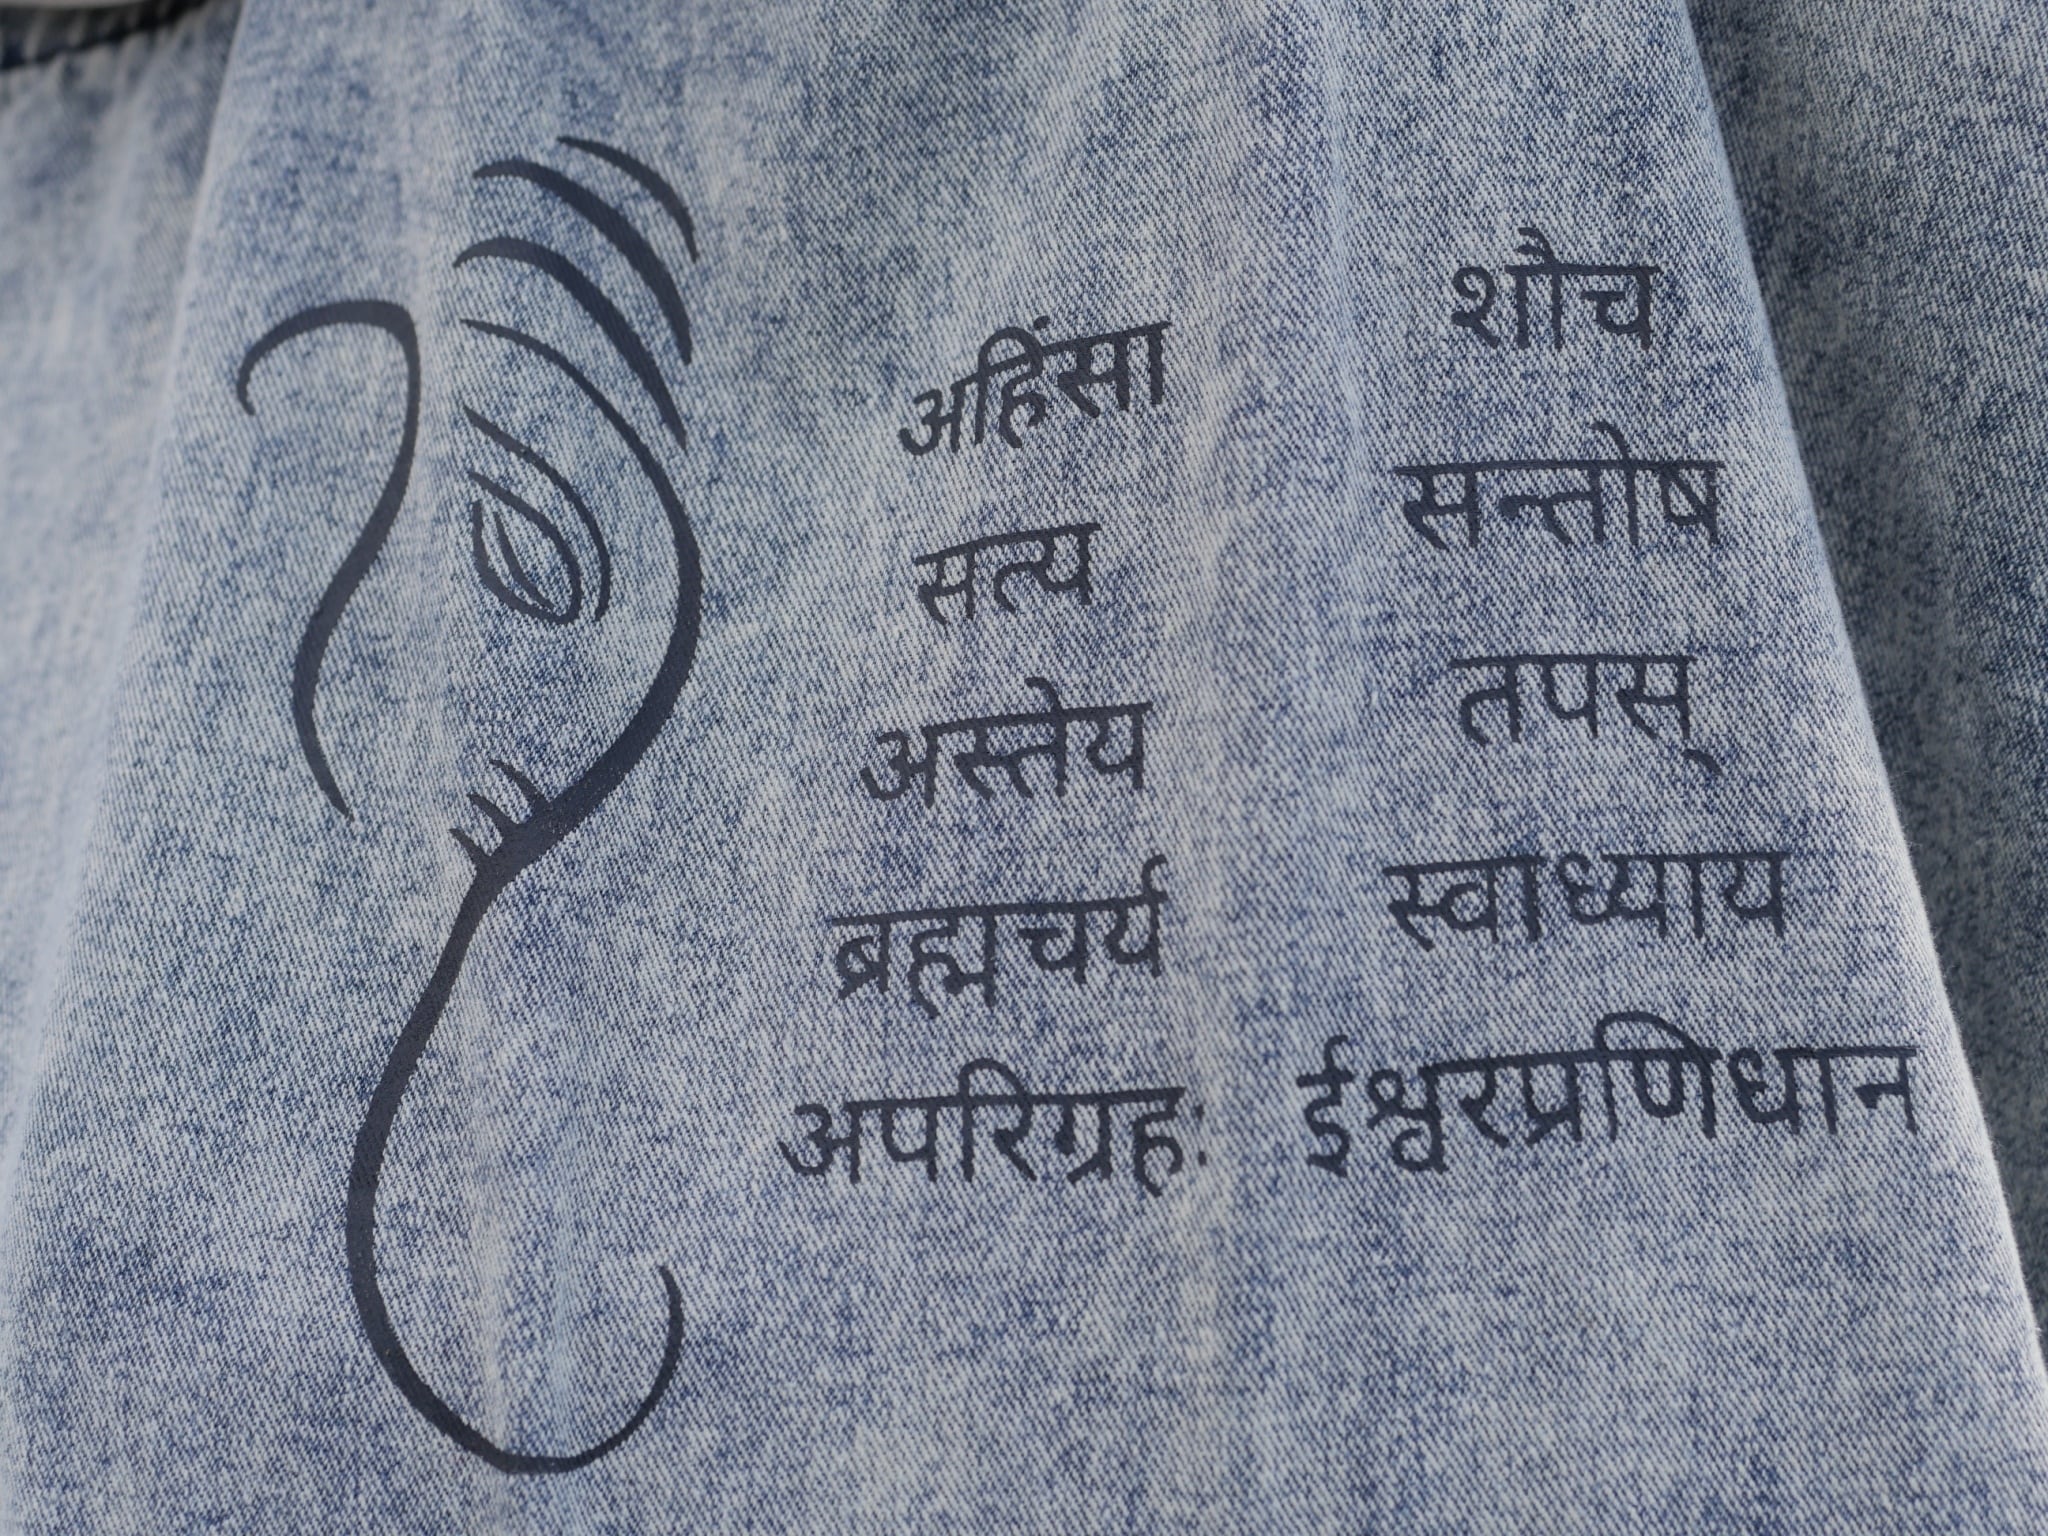 अहिंसा
सत्य
अस्तेय
ब्रह्मचर्य
अपरिग्रहः
शौच
सन्तोष
तपस्
स्वाध्याय
ईश्वरप्रणिधान